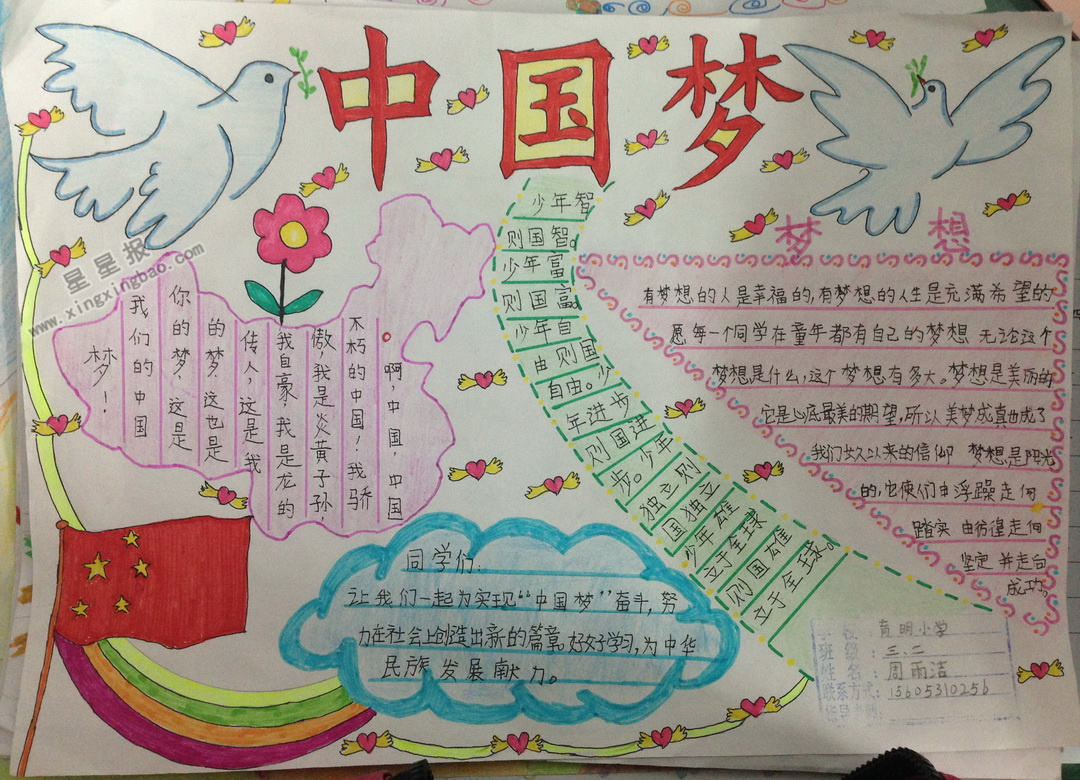 中国梦
星星报
www.xingxingbao.com
啊,中国,中国
不朽的中国!我骄
傲,我是炎黄子孙,
我自豪,我是龙的
传人,这是我
的梦,这也是
你的梦,这是
我们的中国
梦!
少年智
则国智。
少年富
则国富。
少年自
由则国
自由。少
年进步
则国进
步。少年
独立则
国独立
少年雄
立于全球
则国雄
立于全球。
梦想
有梦想的人是幸福的,有梦想的人生是充满希望的
愿每一个同学在童年都有自己的梦想 无论这个
梦想是什么,这个梦想有多大。梦想是美丽的
它是心底最美的期望,所以美梦成真也成了
我们长久以来的信仰 梦想是阳光
的,它使们由浮躁走向
踏实 由彷徨走向
坚定 并走向
成功。
同学们:
让我们一起为实现“中国梦”奋斗,努
力在社会上创造出新的篇章,好好学习,为中华
民族发展献力。
学校:育明小学
班级:三、二
姓名:周雨洁
联系方式:15605310256